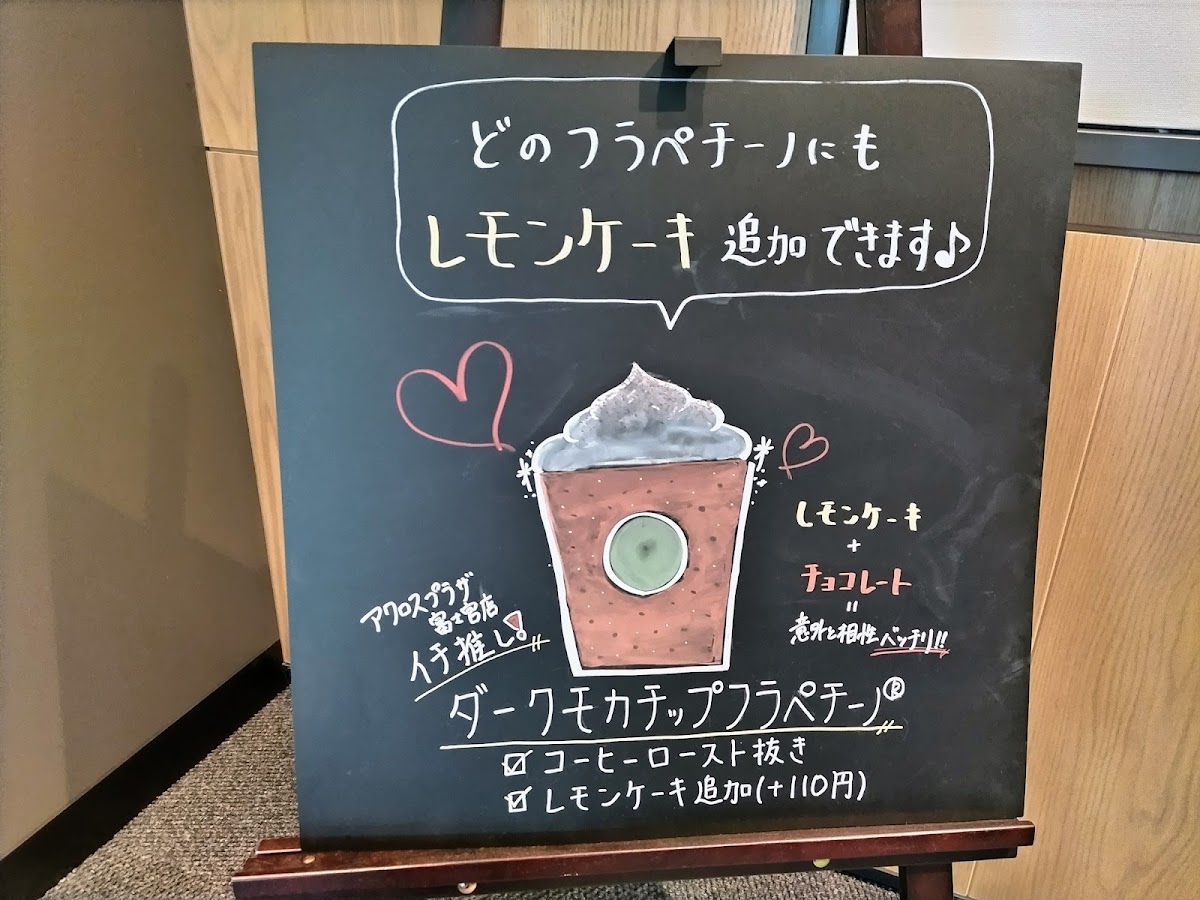 どのフラペチーノにも
レモンケーキ追加できます♪
レモンケーキ
+
チョコレート
=
意外と相性バッチリ!!
アクロスプラザ
富士宮店
イチ推し!
ダークモカチップフラペチーノ®
☑ コーヒーロースト抜き
☑ レモンケーキ追加(+110円)